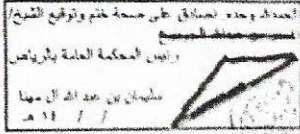 الحمد لله وحده، نصادق على صحة ختم وتوقيع الشيخ/
رئيس المحكمة العامة بالرياض
سليمان بن عبد الله آل مهنا
/ / ١٤ هـ